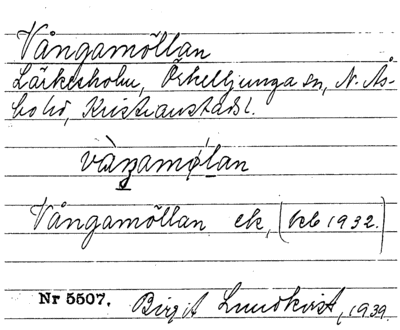 Vångamöllan
Lärkesholm, Örkelljunga sn, N. Ås-
bo hd, Kristianstads l.
våŋamø̀lan
Vångamöllan ek, (kb 1932.)
Nr 5507. Birgit Lundkvist, 1939.